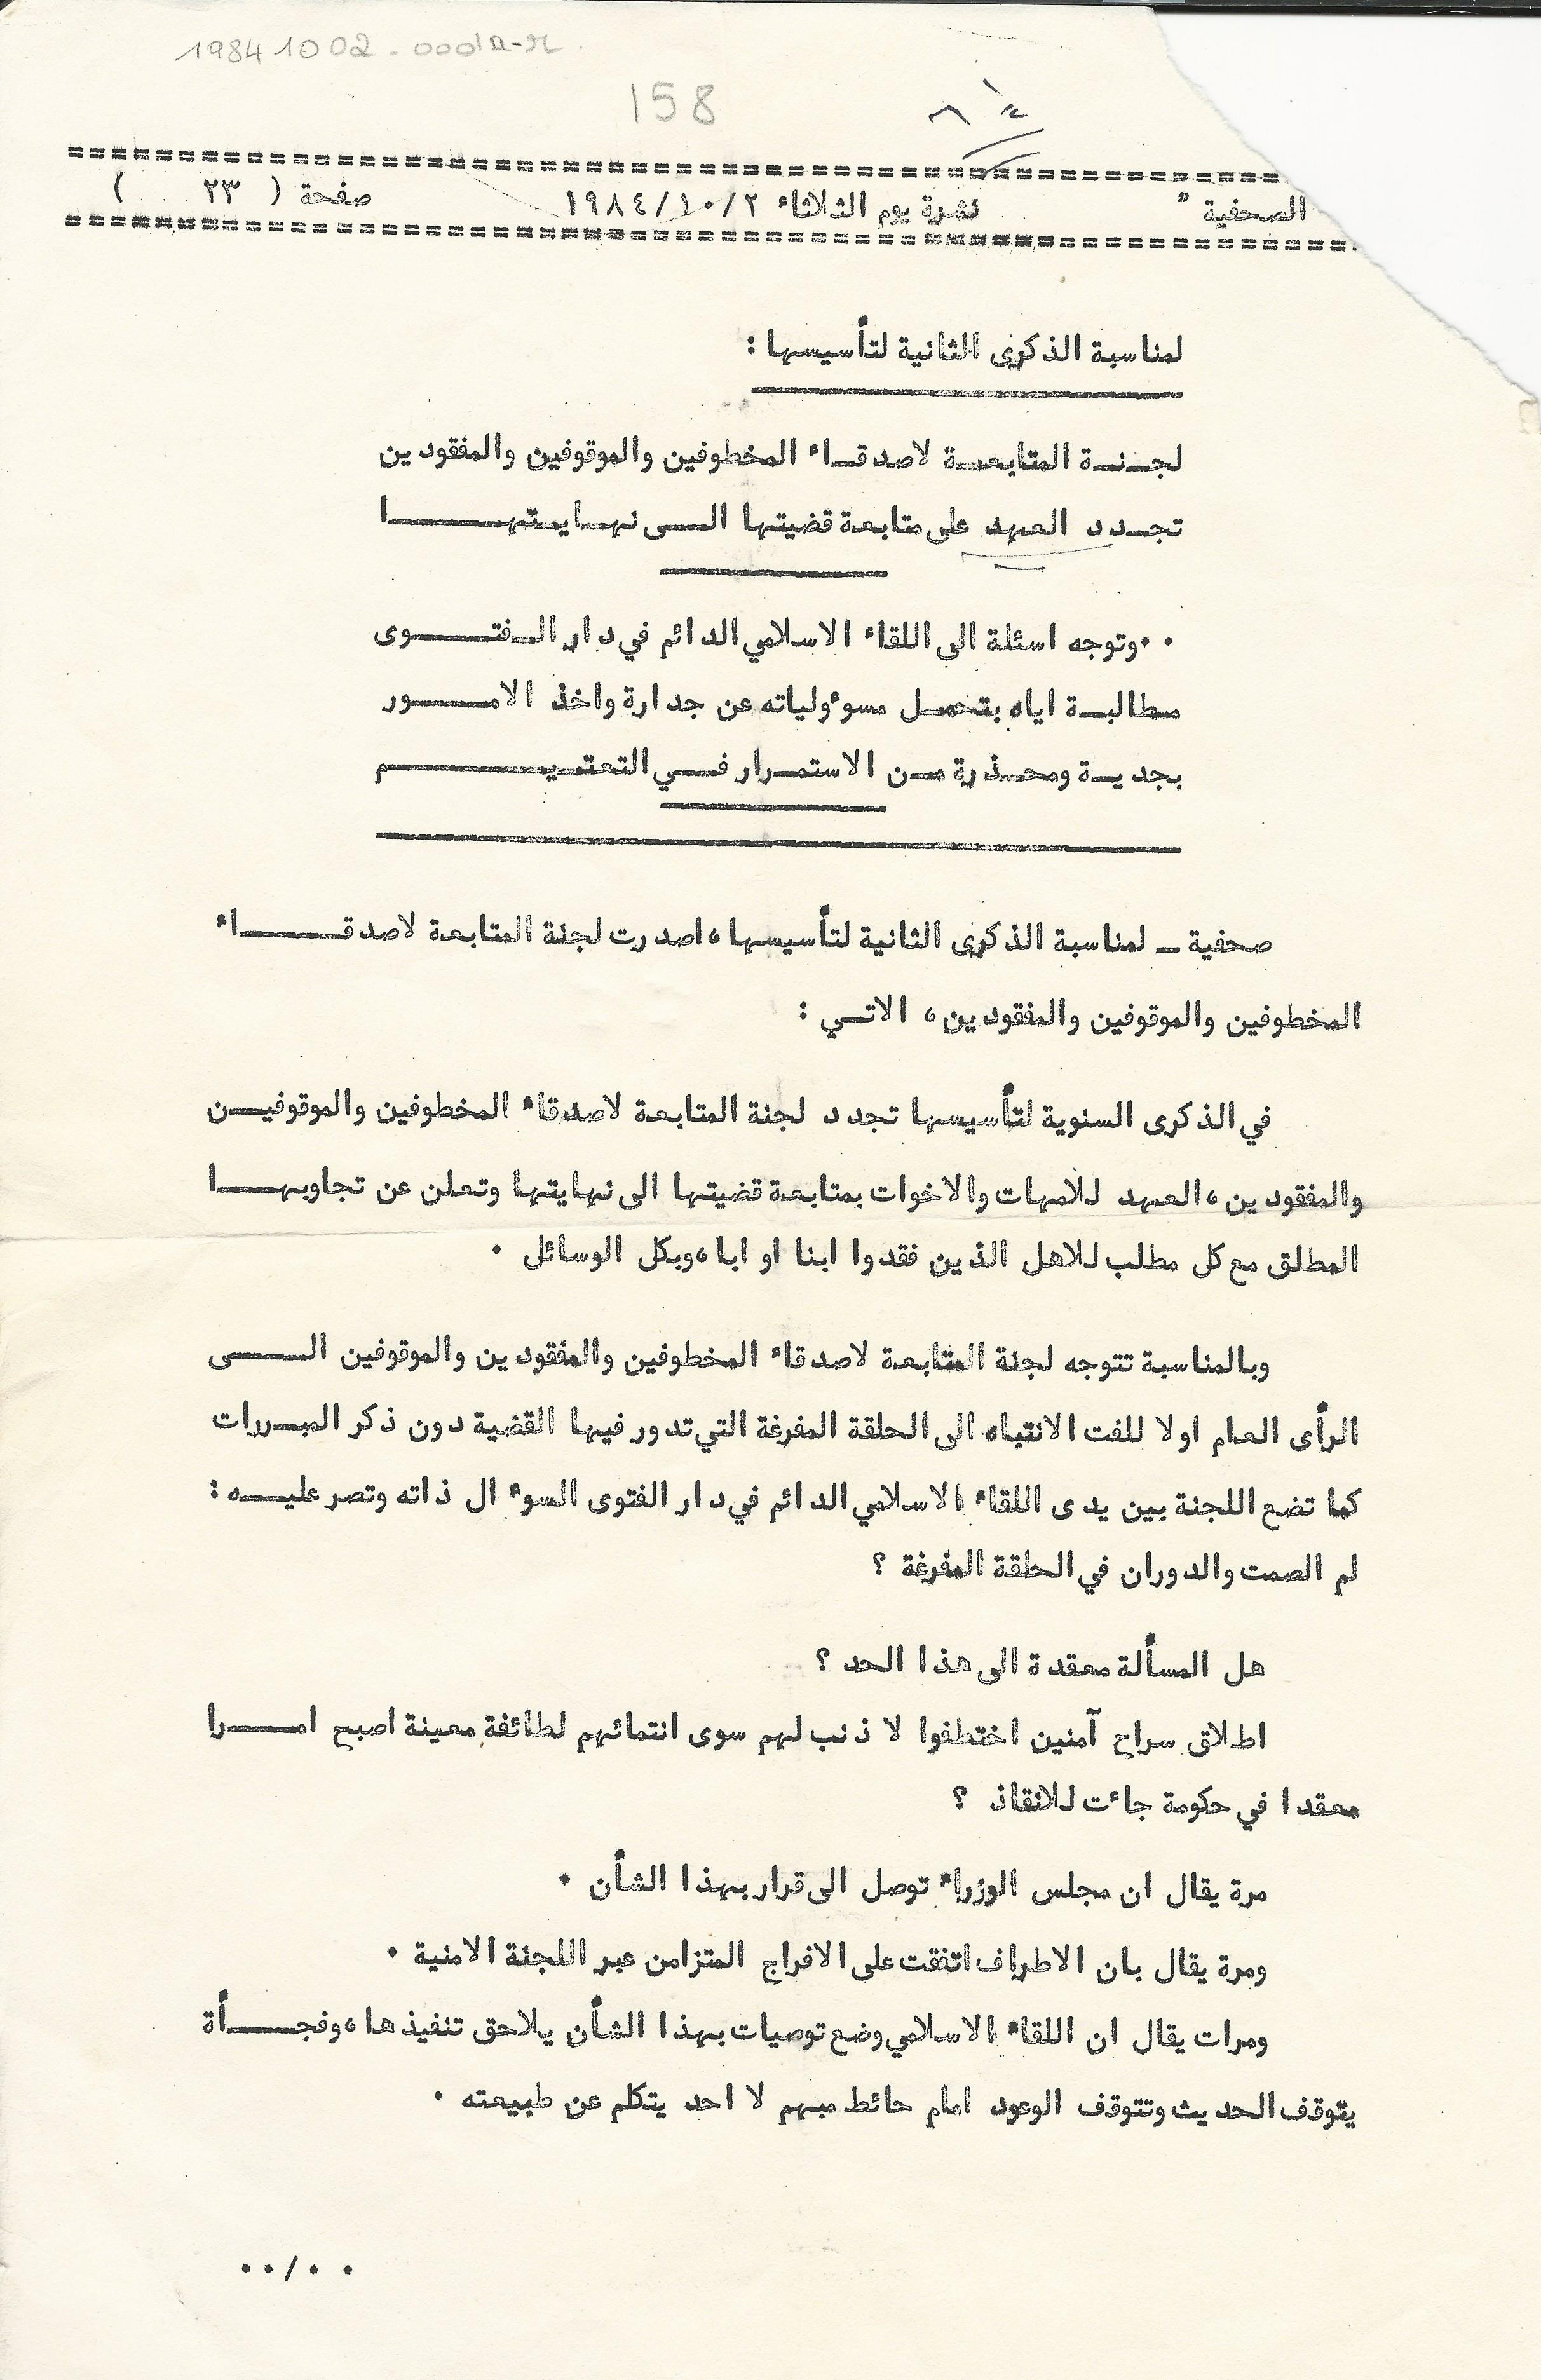 19841002-0001a-
158
الصحفية " نشرة يوم الثلاثاء ١٩٨٤/١٠/٢ صفحة ( ٢٣ )
لمناسبة الذكرى الثانية لتأسيسها :
لجنة المتابعة لاصدقاء المخطوفين والموقوفين والمفقودين
تجدد العهد على متابعة قضيتها الى نهايتها
٠٠وتوجه اسئلة الى اللقاء الاسلامي الدائم في دار الفتوى
مطالبة اياه بتحمل مسوءولياته عن جدارة واخذ الامور
بجدية ومحذرة من الاستمرار في التعتيم
صحفية ــ لمناسبة الذكرى الثانية لتأسيسها، اصدرت لجنة المتابعة لاصدقاء
المخطوفين والموقوفين والمفقودين، الاتي :
في الذكرى السنوية لتأسيسها تجدد لجنة المتابعة لاصدقاء المخطوفين والموقوفين
والمفقودين، العهد للامهات والاخوات بمتابعة قضيتها الى نهايتها وتعلن عن تجاوبها
المطلق مع كل مطلب للاهل الذين فقدوا ابنا او ابا، وبكل الوسائل ٠
وبالمناسبة تتوجه لجنة المتابعة لاصدقاء المخطوفين والمفقودين والموقوفين الى
الرأى العام اولا للفت الانتباه الى الحلقة المفرغة التي تدور فيها القضية دون ذكر المبررات
كما تضع اللجنة بين يدى اللقاء الاسلامي الدائم في دار الفتوى السوء ال ذاته وتصر عليه :
لم الصمت والدوران في الحلقة المفرغة ؟
هل المسألة معقدة الى هذا الحد ؟
اطلاق سراح آمنين اختطفوا لا ذنب لهم سوى انتمائهم لطائفة معينة اصبح امرا
معقدا في حكومة جاءت للانقاذ ؟
مرة يقال ان مجلس الوزراء توصل الى قرار بهذا الشأن ٠
ومرة يقال بان الاطراف اتفقت على الافراج المتزامن عبر اللجنة الامنية ٠
ومرات يقال ان اللقاء الاسلامي وضع توصيات بهذا الشأن يلاحق تنفيذها، وفجأة
يتوقف الحديث وتتوقف الوعود امام حائط مبهم لا احد يتكلم عن طبيعته ٠
٠٠/٠٠